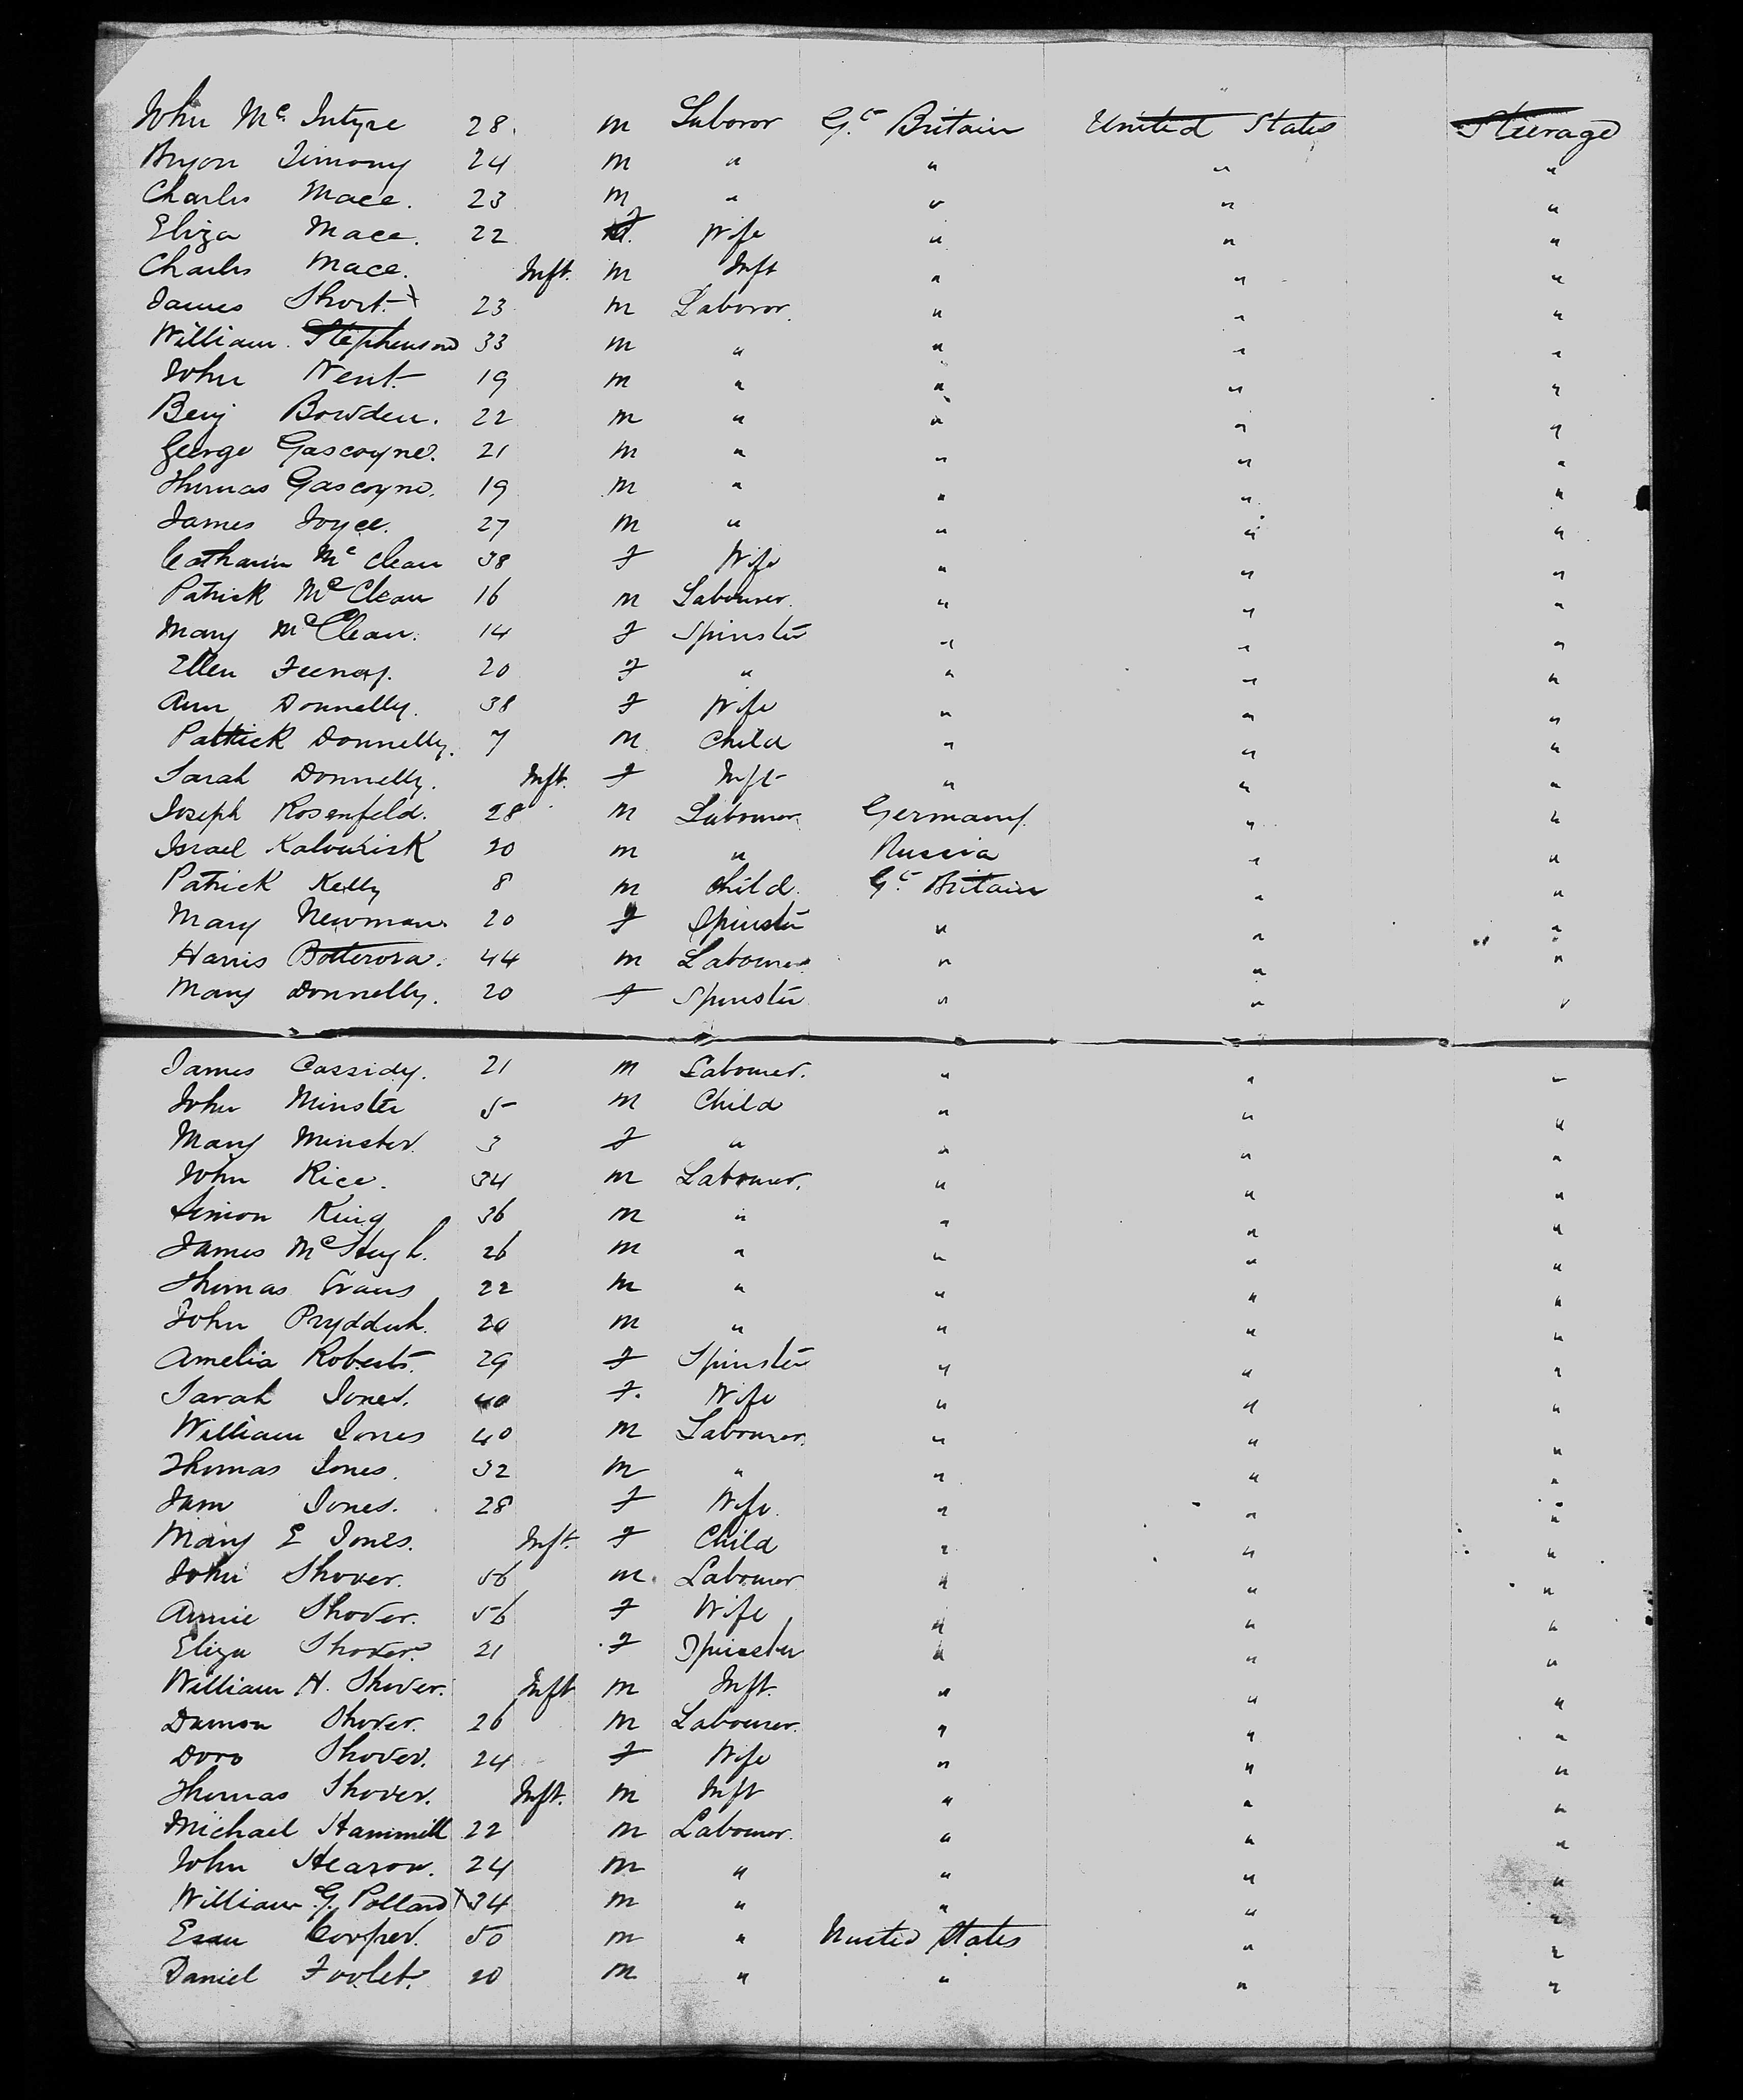 John Mc. Intyre 28. m Laboror Gt. Britain United States Steerage
Bryon Timony 24 m " " " "
Charles Mace. 23 m " " " "
Eliza Mace. 22 f. Wife " " "
Charles Mace. Inft. m Inft " " "
James Short. x 23 m Laboror. " " "
William. Stephenson 33 m " " " "
John Nent. 19 m " " " "
Benj Bowden. 22 m " " " "
George Gascoyne. 21 m " " " "
Thomas Gascoyne. 19 m " " " "
James Joyce. 27 m " " " "
Catharin Mc Clean 38 f Wife " " "
Patrick Mc Clean 16 m Labourer. " " "
Mary Mc Clean. 14 f Spinster " " "
Ellen Feenay. 20 f " " " "
Ann Donnelly. 38 f Wife " " "
Patrick Donnelly. 7 m Child " " "
Sarah Donnelly. Inft. f Inft " " "
Joseph Rosenfeld. 28 m Labourer. Germany. " "
Israel 20 m " Russia " "
Patrick Kelly 8 m Child. Gt. Britain " "
Mary Newman. 20 f Spinster " " "
Harris 44 m Labourer " " "
Mary Donnelly. 20 f Spinster " " "
James Cassidy. 21 m Labourer. " " "
John Minster 5 m Child " " "
Mary Minster. 3 f " " " "
John Rice. 34 m Labourer. " " "
Simon King 36 m " " " "
James Mc Hugh. 26 m " " " "
Thomas Evans 22 m " " " "
John Prydduh. 20 m " " " "
Amelia Roberts. 29 f Spinster " " "
Sarah Jones. 40 f. Wife " " "
William Jones 40 m Labourer. " " "
Thomas Jones. 32 m " " " "
Jam Jones. 28 f Wife. " " "
Mary E Jones. Inft. f Child " " "
John Shover. 56 m. Labourer " " "
Annie Shover. 56 f Wife " " "
Eliza Shover. 21 f Spinster " " "
William H. Shover. Inft m Inft. " " "
Damon Shover. 26 m Labourer. " " "
Doro Shover. 24 f Wife " " "
Thomas Shover. Inft. m Inft " " "
Michael Hammill 22 m Labourer. " " "
John Hearon. 24 m " " " "
William. G. Pollard x 34 m " " " "
Esau Cooper. 50 m " United States " "
Daniel 20 m " " " "